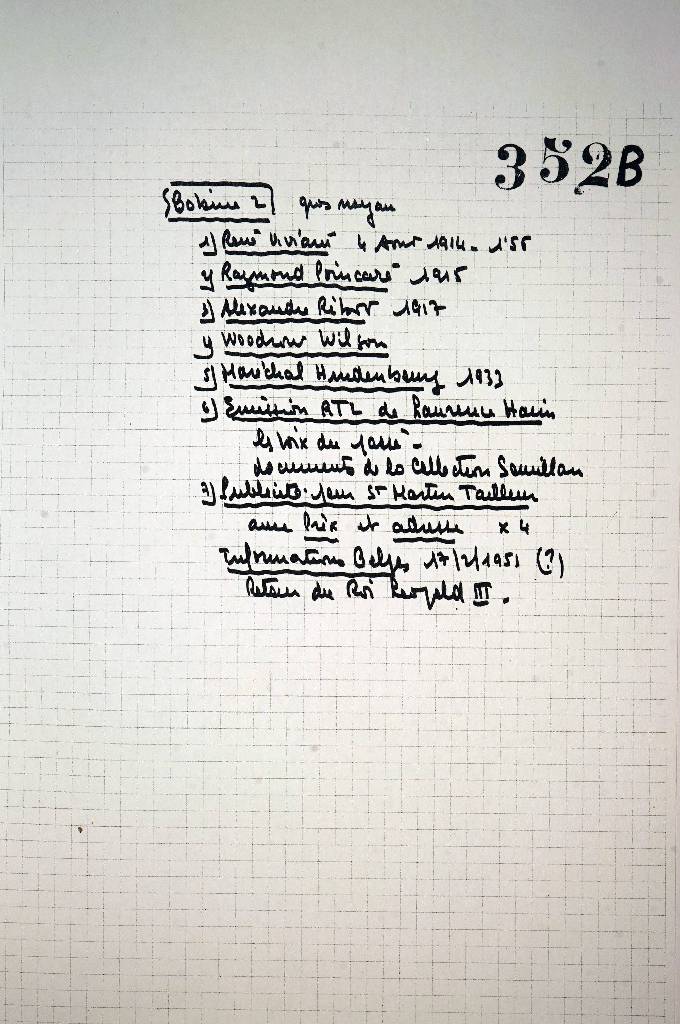 352B
Bobine 2 gros noyau
1) René Viviani 4 Aout 1914 - 1'55
2) Raymond Poincaré 1915
3) Alexandre Ribot 1917
4) Woodrow Wilson
5) Maréchal Hindenburg 1933
6) Emission RTL de Laurence Harin
les voix du passé -
documents de la Collection
7) Publicité pour St Martin Tailleur
avec Prix et adresse x 4
Informations Belges 17/2/1951 (?)
Retour du Roi Leopold III.